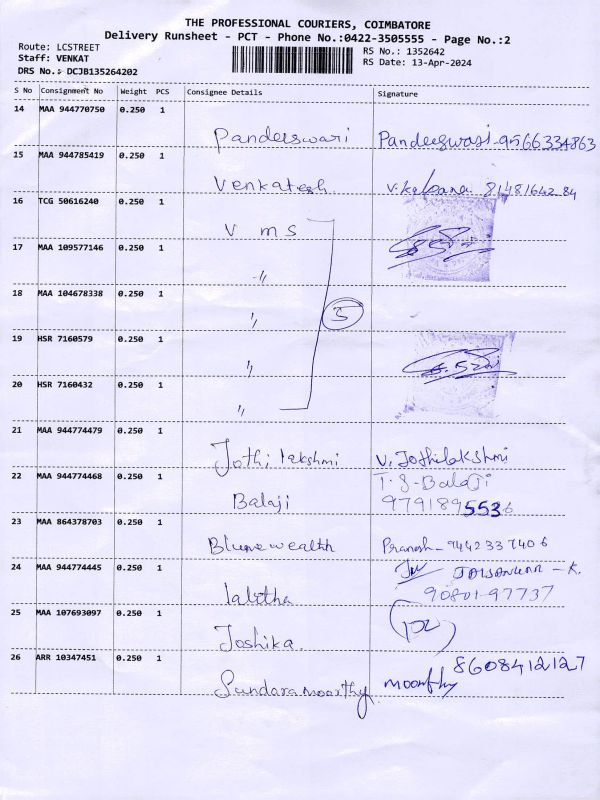 THE PROFESSIONAL COURIERS, COIMBATORE
Delivery Runsheet - PCT - Phone No.:0422-3505555 - Page No.:2
Route: LCSTREET
Staff: VENKAT
DRS No.: DCJB135264202
RS No.: 1352642
RS Date: 13-Apr-2024
S No Consignment No Weight PCS Consignee Details Signature
14 MAA 944770750 0.250 1
Pandeeswari Pandeeswari-9566334863
15 MAA 944785419 0.250 1
Venkatesh V.Kalpana 8148164284
16 TCG 50616240 0.250 1
V m s
17 MAA 109577146 0.250 1
-"
18 MAA 104678338 0.250 1
"
5
19 HSR 7160579 0.250 1
"
20 HSR 7160432 0.250 1
"
21 MAA 944774479 0.250 1
Jothi lakshmi V. Jothilakshmi
22 MAA 944774468 0.250 1
T.S-Balaji
Balaji 9791895536
23 MAA 864378703 0.250 1
Blume wealth Pranesh-9442337406
24 MAA 944774445 0.250 1
JAISANKAR - K.
lalitha 90801-97737
25 MAA 107693097 0.250 1
Joshika.
26 ARR 10347451 0.250 1
8608412127
Sundaramoorthy. moorthy